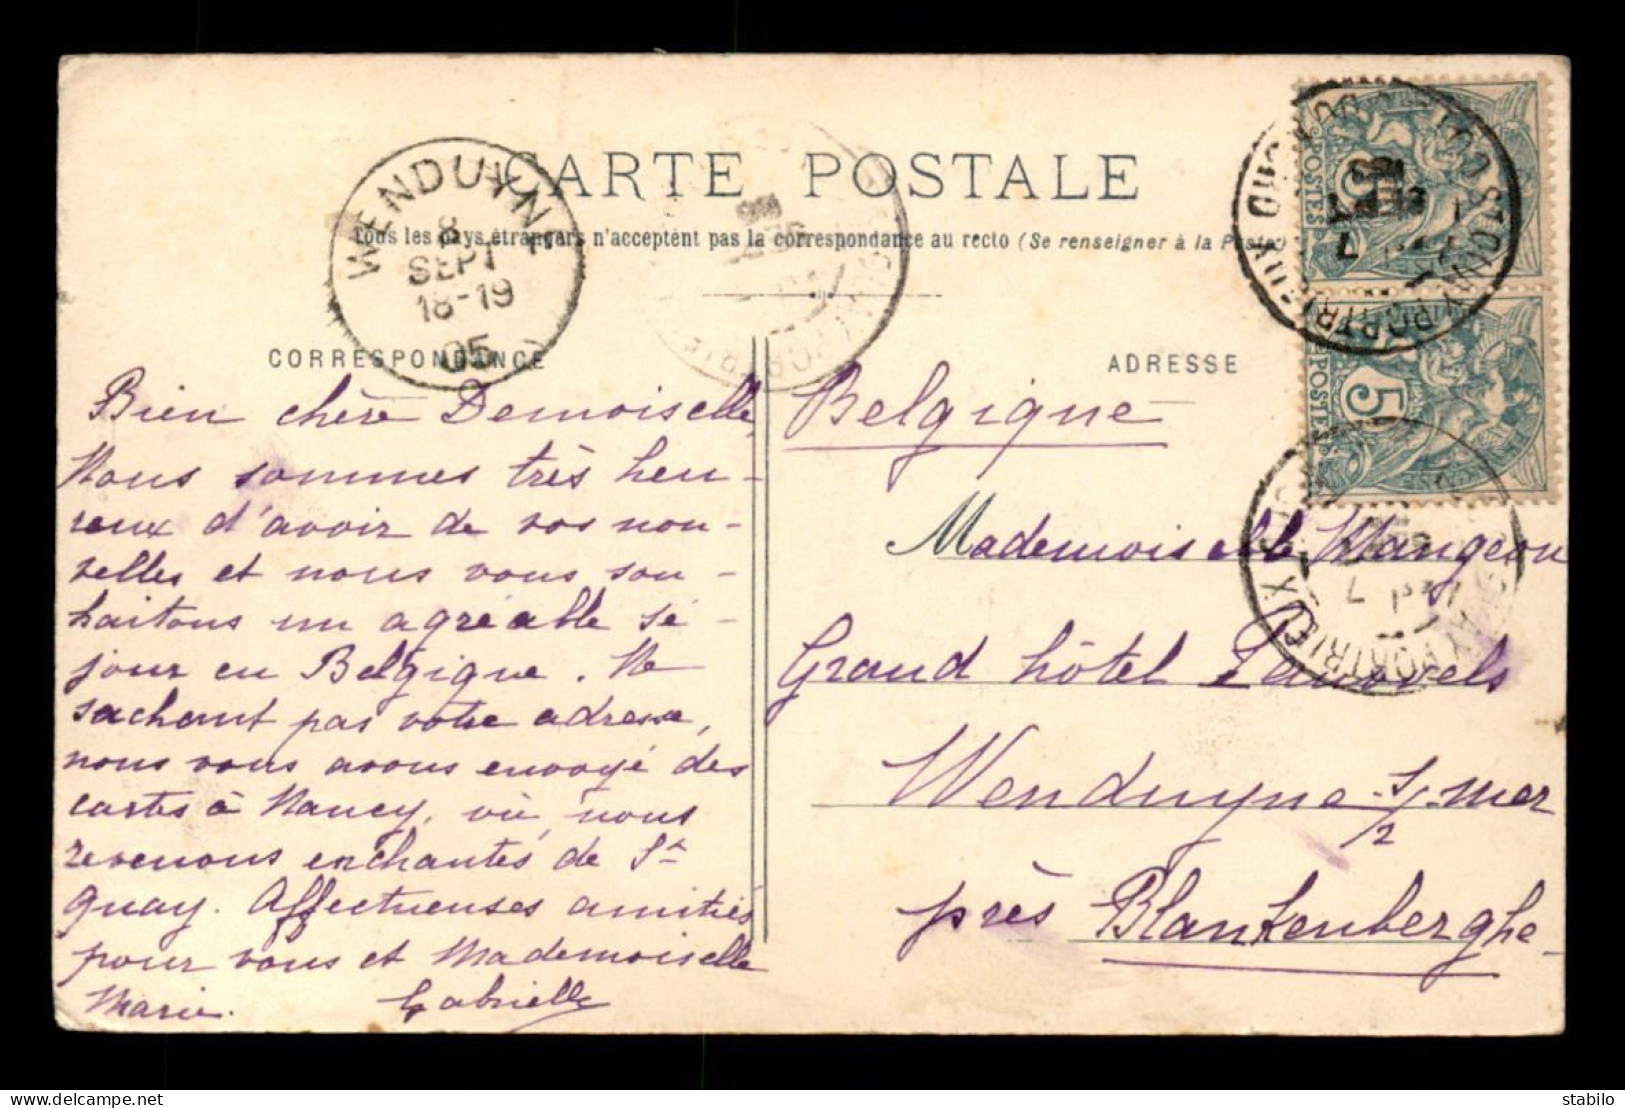 CARTE POSTALE
Tous les pays étrangers n'acceptent pas la correspondance au recto (Se renseigner à la Poste)
WENDUYNE
8
SEPT
18-19
05
CORRESPONDANCE
Bien chère Demoiselle,
Nous sommes très heu-
reux d'avoir de vos nou-
velles et nous vous sou-
haitons un agréable sé-
jour en Belgique. Ne
sachant pas votre adresse,
nous vous avons envoyé des
cartes à Nancy, où nous
revenons enchantés de St
Quay. Affectueuses amitiés
pour vous et Mademoiselle
Marie. Gabrielle
ADRESSE
Belgique
Mademoiselle Mangeon
Grand hôtel Pauwels
Wenduyne s/mer
près Blankenberghe
5
POSTES
5
POSTES
PORTRIEUX
PORTRIEUX
stabilo